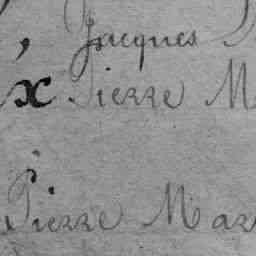 , Jacques
x Pierre M
Pierre Mar